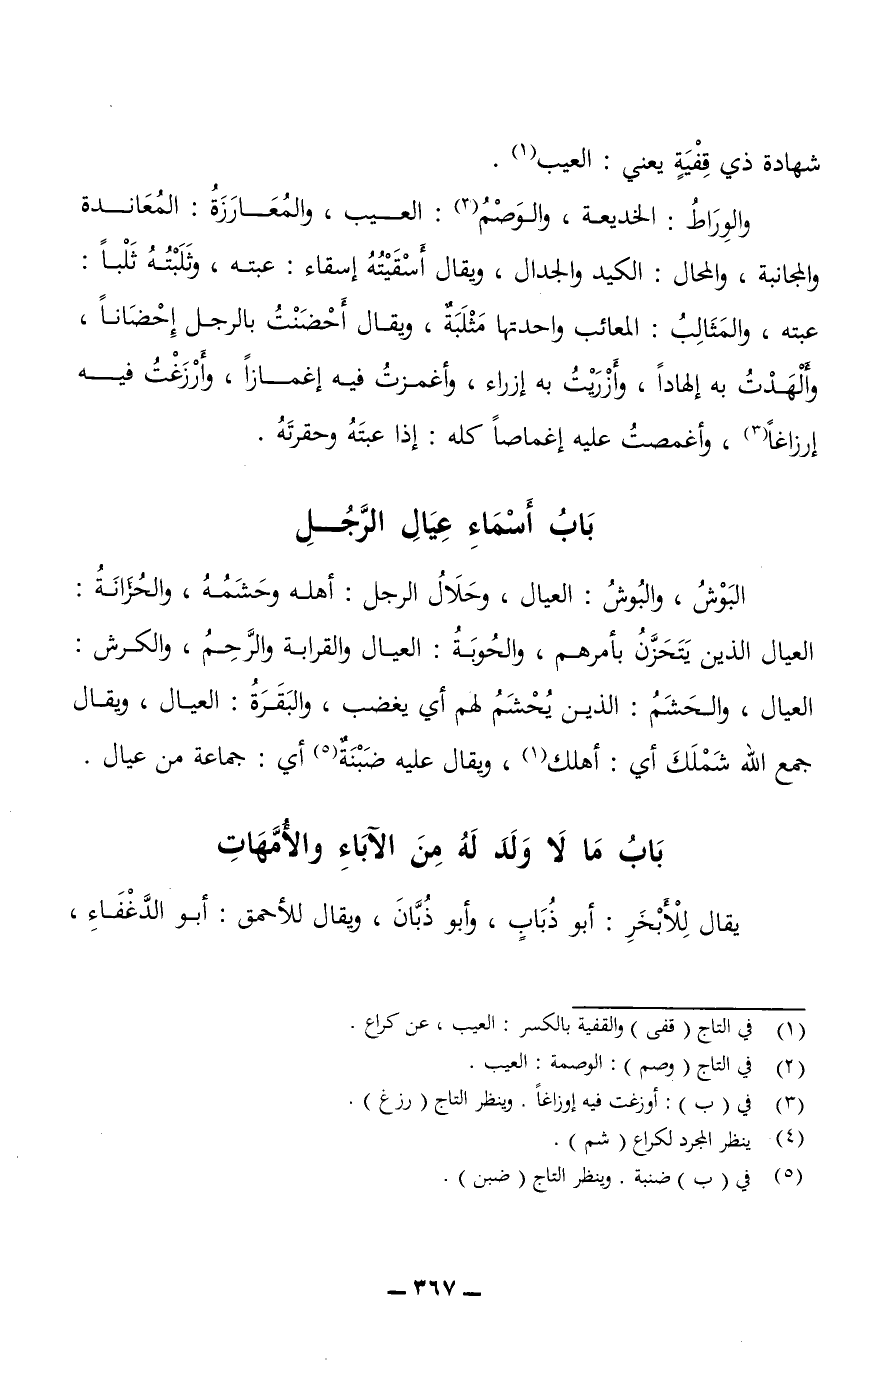 شهادة ذي قِفْيَةٍ يعني : العيب(١) .
والوِرَاطُ : الخديعة ، والوَصْمُ(٢) : العيب ، والمُعَارَزَةُ : المُعَاندة
والمجانبة ، والمحال : الكيد والجدال ، ويقال أَسْقَيْتُهُ إسقاء : عبته ، وثَلَبْتُهُ ثَلْباً :
عبته ، والمَثَالِبُ : المعائب واحدتها مَثْلَبَةٌ ، ويقال أَحْضَنْتُ بالرجل إحْضَاناً ،
وأَلْهَدْتُ به إلهاداً ، وأَزْرَيْتُ به إزراء ، وأغمزتُ فيه إغمازاً ، وأَرْزَغْتُ فيه
إرزاغاً(٣) ، وأغمصتُ عليه إغماصاً كله : إذا عبتَهُ وحقرتَهُ .
بَابُ أَسْمَاءِ عِيَالِ الرَّجُلِ
البَوْشُ ، والبُوشُ : العيال ، وحَلَالُ الرجل : أهله وحَشَمُهُ ، والحُزَانَةُ :
العيال الذين يَتَحَزَّنُ بأمرهم ، والحُوبَةُ : العيال والقرابة والرَّحِمُ ، والكرش :
العيال ، والحَشَمُ : الذين يُحْشَمُ لهم أي يغضب ، والبَقَرَةُ : العيال ، ويقال
جمع الله شَمْلَكَ أي : أهلك(١) ، ويقال عليه ضَبْنَةٌ(٥) أي : جماعة من عيال .
بَابُ مَا لَا وَلَدَ لَهُ مِنَ الآبَاءِ والأُمَّهَاتِ
يقال لِلْأَبْخَرِ : أبو ذُبَابٍ ، وأبو ذُبَّانَ ، ويقال للأحمق : أبو الدَّغْفَاءِ ،
(١) في التاج ( قفى ) والقفية بالكسر : العيب ، عن كراع .
(٢) في التاج ( وصم ) : الوصمة : العيب .
(٣) في ( ب ) : أوزغت فيه إوزاغاً . وينظر التاج ( رزغ ) .
(٤) ينظر المجرد لكراع ( شم ) .
(٥) في ( ب ) ضنبة . وينظر التاج ( ضبن ) .
ـ ٣٦٧ ـ